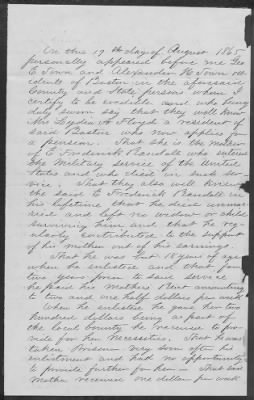 On this 19th day of August 1865
personally appeared before me Geo
E Town and Alexander H Town res
idents of Boston in the aforesaid
County and State persons whom I
certify to be credible and who being
duly sworn say that they well know
Mrs Lydia A Floyd a resident of
said Boston who now applies for
a pension. That she is the mother
of E Frederick Randall who entered
the Military service of the United
States and who died in such ser-
vice. That they also well knew
the said E Frederick Randall in
his lifetime that he died unmar-
ried and left no widow or child
surviving him and that he reg-
ularly contributed to the support
of his mother out of his earnings
That he was but 18 years of age
when he enlisted and that for
two years prior to said service
he paid his mothers Rent amounting
to two and one half dollars per week
When he enlisted he gave her two
hundred dollars being a part of
the local bounty he received to pro-
vide for her necessities. That he was
taken Prisoner very soon after his
enlistment and had no opportunity
to provide further for her — That said
mother received one dollar per week